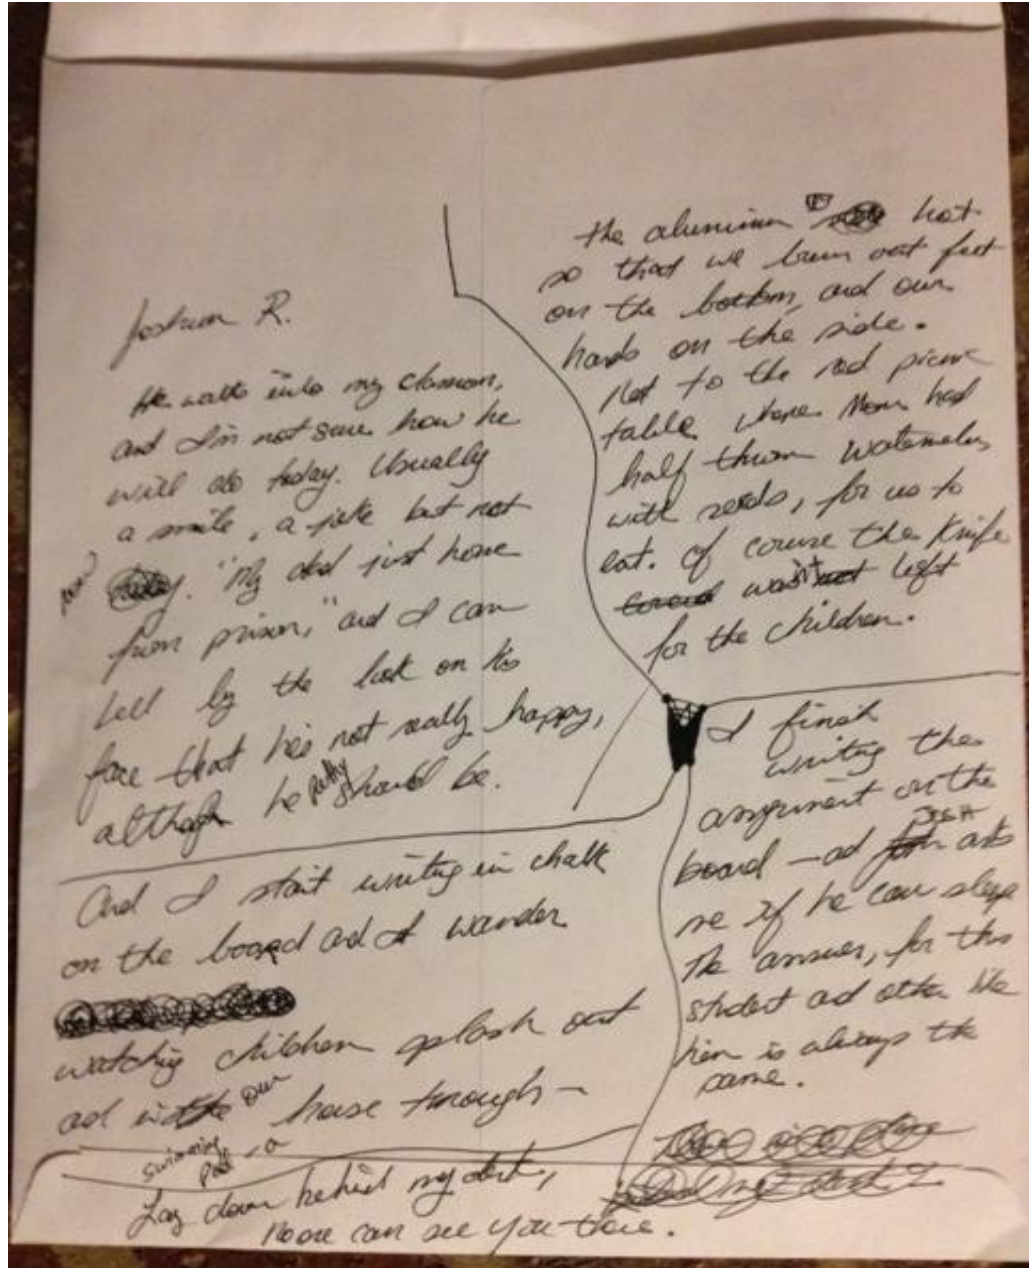 Joshua R.
He walks into my classroom,
and I'm not sure how he
will do today. Usually
a smile, a joke but not
"My dad just home
from prison," and I can
tell by the look on his
face that he's not really happy,
although he partly should be.
And I start writing in chalk
on the board and I wander
watching children splash out
and in our horse trough –
swimming
pool – a
the aluminum hot
so that we burn out feet
on the bottom, and our
hands on the side.
Next to the red picnic
table where Mom had
half thrown watermelon
with seeds, for us to
eat. Of course the knife
wasn't left
for the children.
I finish
writing the
assignment on the
board – ad Josh asks
me if he can sleep
The answer, for this
student ad other like
him is always the
same.
Lay down behind my desk,
No one can see you there.